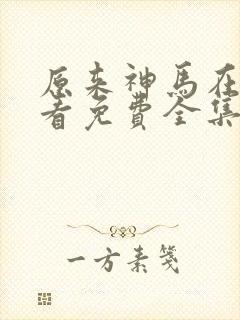 原来神马在
看免费全集
一方素笺